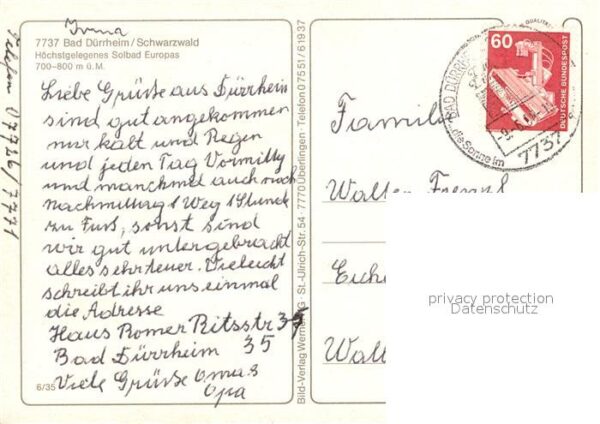 Irma
7737 Bad Dürrheim/Schwarzwald
Höchstgelegenes Solbad Europas
700-800 m ü.M.
Telefon 07726/7771
Liebe Grüsse aus Dürrheim
sind gut angekommen
nur kalt und Regen
und jeden Tag Vormittg
und manchmal auch noch
nachmittag 1 Weg 1 Stunde
zu Fuss, sonst sind
wir gut untergebracht
alles sehr teuer. Vieleicht
schreibt ihr uns einmal
die Adresse
Haus Romer Ritsstr 35
Bad Dürrheim 35
Viele Grüsse Oma &
Opa
6/35
Bild-Verlag Werner · St.-Ulrich-Str. 54 · 7770 Überlingen · Telefon 07551/61937
QUALITÄT
60
DEUTSCHE BUNDESPOST
BAD DÜRRHEIM
die Sonne im
7737
Familie
Walter
Eich
Walt
privacy protection
Datenschutz